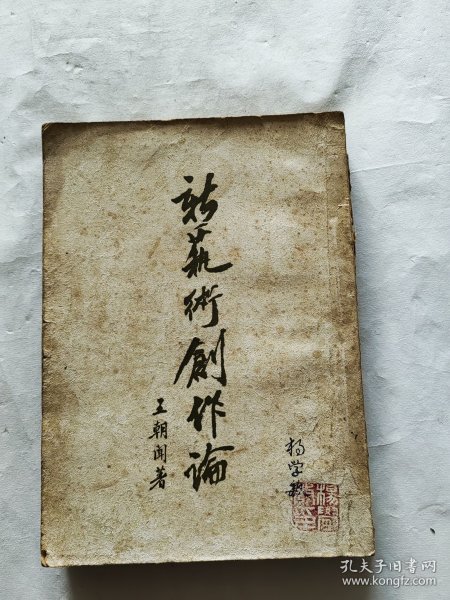 新藝術創作論
王朝聞著
杨学
孔夫子旧书网
www.kongfz.com